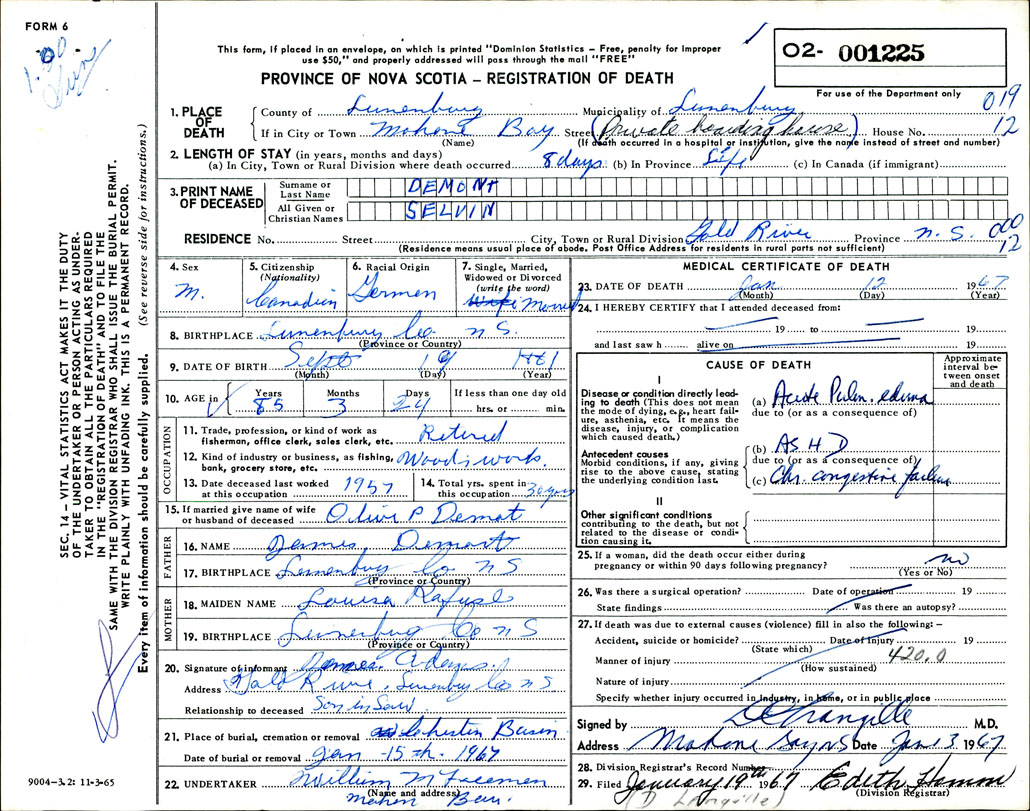 FORM 6
1.00
This form, if placed in an envelope, on which is printed "Dominion Statistics – Free, penalty for improper
use $50," and properly addressed will pass through the mail "FREE"
PROVINCE OF NOVA SCOTIA – REGISTRATION OF DEATH
O2- 001225
For use of the Department only
019
12
1. PLACE OF DEATH
County of Lunenburg Municipality of Lunenburg
If in City or Town Mahone Bay Street (Private boarding house) House No.
(Name) (If death occurred in a hospital or institution, give the name instead of street and number)
2. LENGTH OF STAY (in years, months and days)
(a) In City, Town or Rural Division where death occurred 8 days (b) In Province Life (c) In Canada (if immigrant)
3. PRINT NAME OF DECEASED
Surname or Last Name DEMONT
All Given or Christian Names SELVIN
RESIDENCE No. Street City, Town or Rural Division Gold River Province N.S.
000
12
(Residence means usual place of abode. Post Office Address for residents in rural parts not sufficient)
4. Sex M.
5. Citizenship (Nationality) Canadian
6. Racial Origin German
7. Single, Married, Widowed or Divorced (write the word)
8. BIRTHPLACE Lunenburg Co N S.
(Province or Country)
9. DATE OF BIRTH Sept 19
(Month) (Day) (Year)
10. AGE in Years 85 Months 3 Days 24 If less than one day old hrs. or min.
OCCUPATION
11. Trade, profession, or kind of work as fisherman, office clerk, sales clerk, etc. Retired
12. Kind of industry or business, as fishing, bank, grocery store, etc. Woods work.
13. Date deceased last worked at this occupation 1957
14. Total yrs. spent in this occupation 30 years
15. If married give name of wife or husband of deceased Olive P Demont
FATHER
16. NAME James Demont
17. BIRTHPLACE Lunenburg Co N S
(Province or Country)
MOTHER
18. MAIDEN NAME Louisa Rafuse
19. BIRTHPLACE Lunenburg Co N S
(Province or Country)
20. Signature of informant James Adams.
Address Gold River, Lunenburg Co N S
Relationship to deceased Son in Law
21. Place of burial, cremation or removal Chester Basin
Date of burial or removal Jan -15th- 1967
22. UNDERTAKER William M
(Name and address)
Mahone Bay.
MEDICAL CERTIFICATE OF DEATH
23. DATE OF DEATH Jan 12 1967
(Month) (Day) (Year)
24. I HEREBY CERTIFY that I attended deceased from:
19 to 19
and last saw h alive on 19
CAUSE OF DEATH
Approximate interval between onset and death
I
Disease or condition directly leading to death (This does not mean the mode of dying, e.g., heart failure, asthenia, etc. It means the disease, injury, or complication which caused death.)
(a) Acute Pulm. edema
due to (or as a consequence of)
Antecedent causes
Morbid conditions, if any, giving rise to the above cause, stating the underlying condition last.
(b) A S H D
due to (or as a consequence of)
(c) Chr. congestive failure
II
Other significant conditions
contributing to the death, but not related to the disease or condition causing it.
25. If a woman, did the death occur either during pregnancy or within 90 days following pregnancy? no
(Yes or No)
26. Was there a surgical operation? Date of operation 19
State findings Was there an autopsy?
27. If death was due to external causes (violence) fill in also the following: –
Accident, suicide or homicide? Date of Injury 19
(State which)
Manner of injury 420.0
(How sustained)
Nature of injury
Specify whether injury occurred in industry, in home, or in public place
Signed by M.D.
Address Mahone Bay NS Date 1967
28. Division Registrar's Record Number
29. Filed January 19th 1967 Edith
(Division Registrar)
SEC. 14 – VITAL STATISTICS ACT MAKES IT THE DUTY
OF THE UNDERTAKER OR PERSON ACTING AS UNDER-
TAKER TO OBTAIN ALL THE PARTICULARS REQUIRED
IN THE "REGISTRATION OF DEATH" AND TO FILE THE
SAME WITH THE DIVISION REGISTRAR WHO SHALL ISSUE THE BURIAL PERMIT.
WRITE PLAINLY WITH UNFADING INK. THIS IS A PERMANENT RECORD.
Every item of information should be carefully supplied. (See reverse side for instructions.)
9004-3.2: 11-3-65